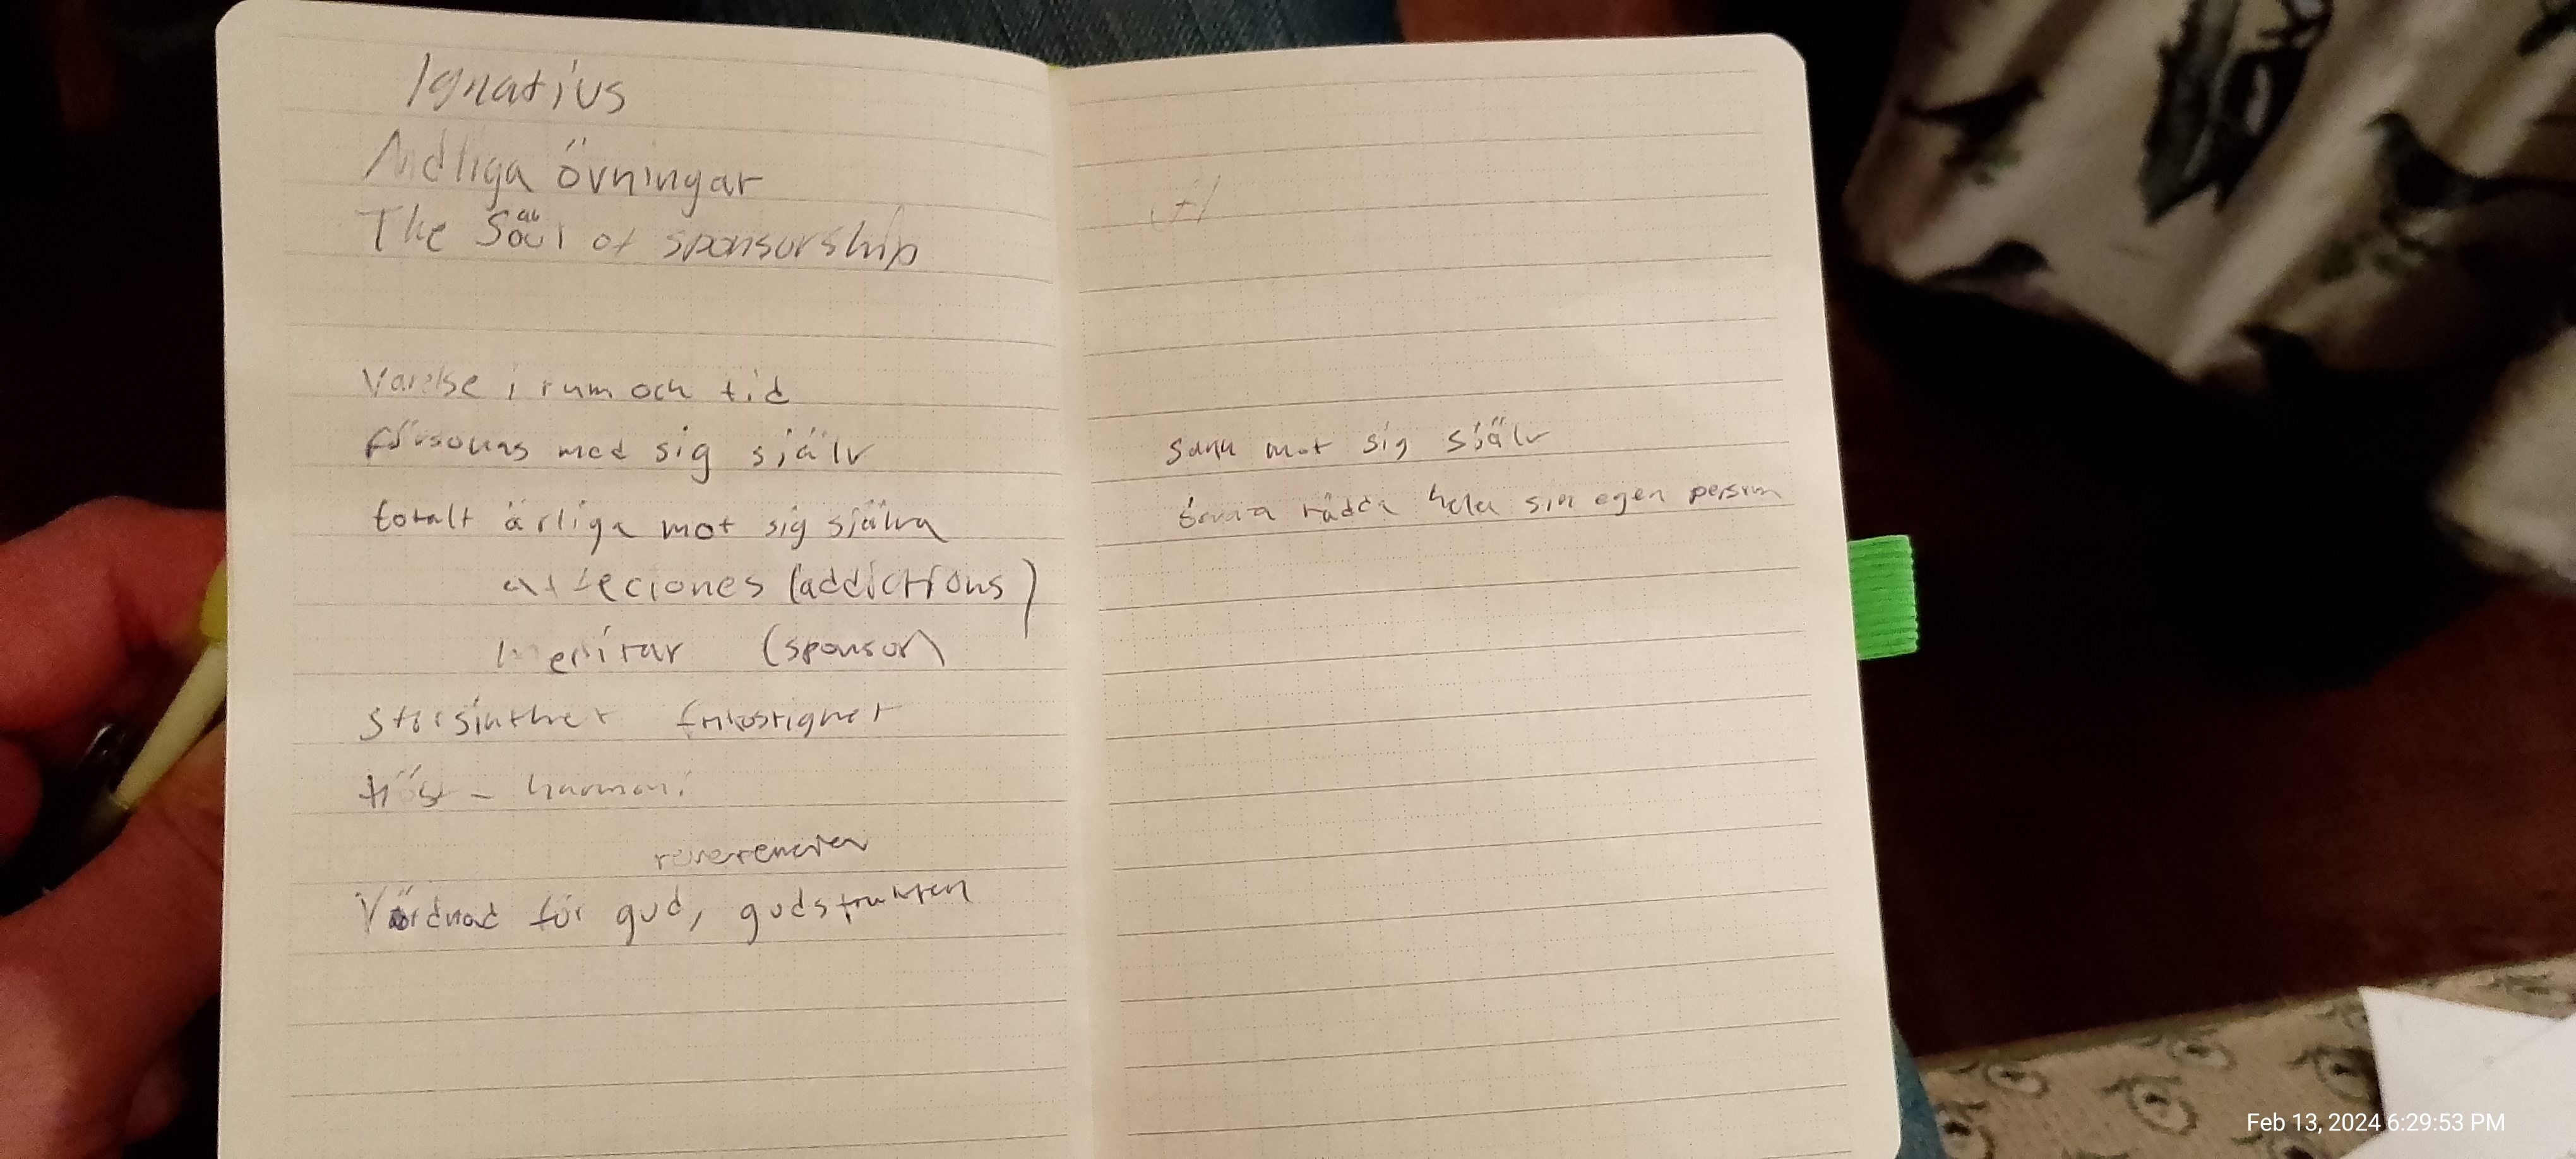 Ignatius
Andliga övningar
au
The Soul of sponsorship
Varelse i rum och tid
försonas med sig själv
totalt ärliga mot sig själva
affeciones (addictions)
(sponsor)
storsinthet frikostighet
tröst - harmoni
reverencia
Vördnad för gud, gudsfruktan
sann mot sig själv
rädda hela sin egen person
Feb 13, 2024 6:29:53 PM